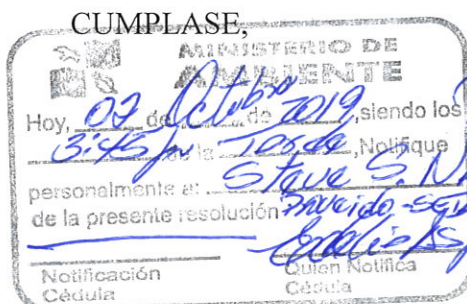 CUMPLASE,
MINISTERIO DE
AMBIENTE
Hoy, 02 de Octubre de 2019, siendo los
3:45 pm de la Tarde, Notifique
personalmente a: Steve S.
de la presente resolución
Notificación Quien Notifica
Cédula Cédula